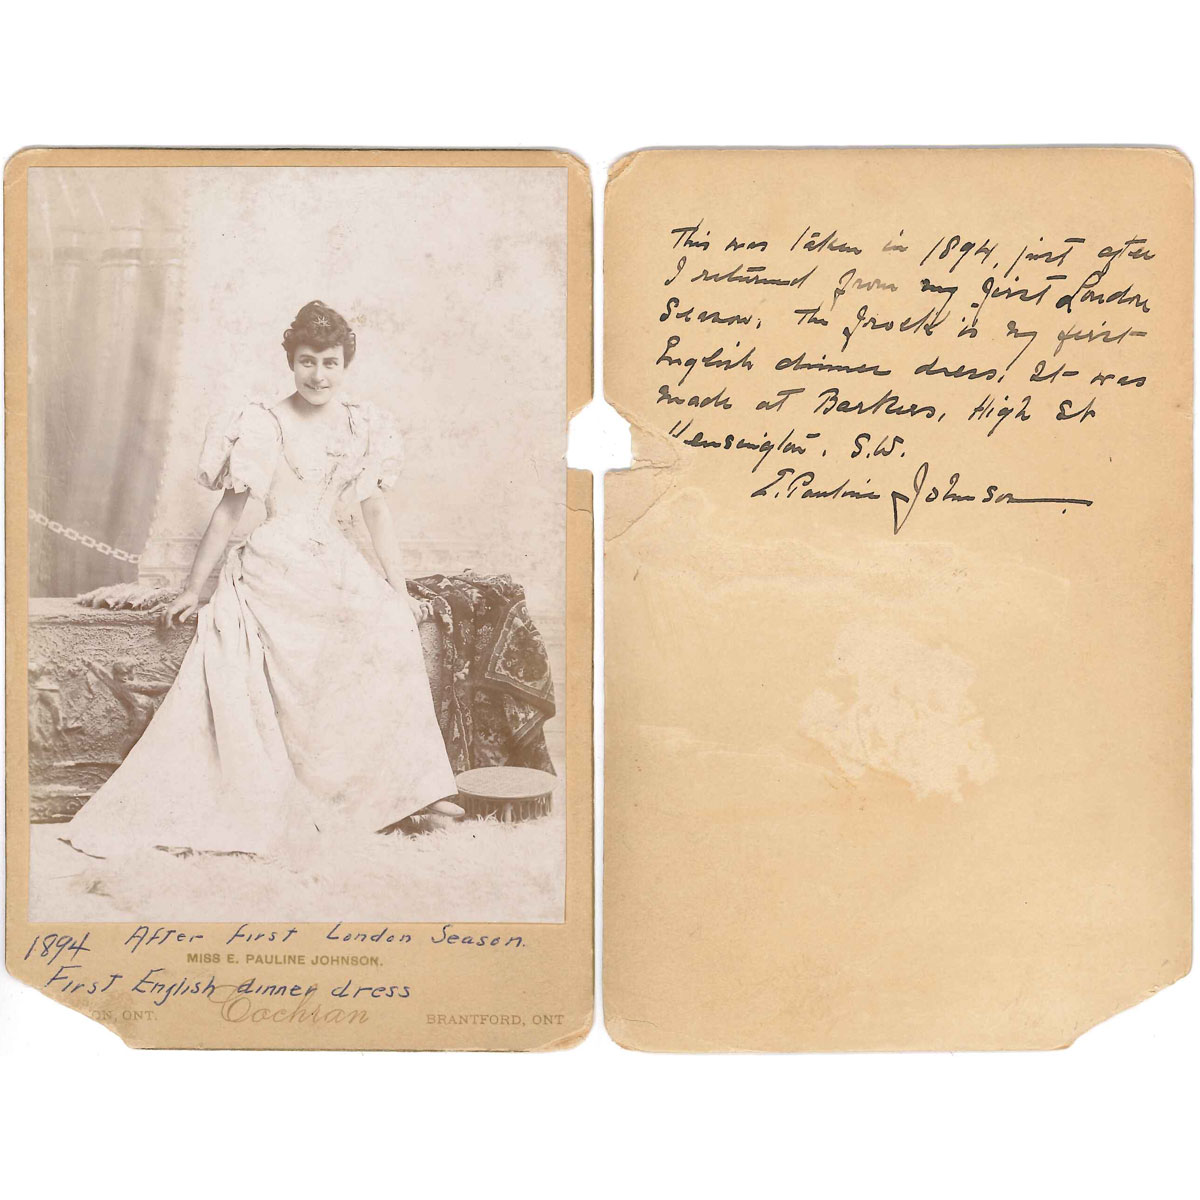 1894 After First London Season.
MISS E. PAULINE JOHNSON.
First English dinner dress
ON, ONT. Cochran BRANTFORD, ONT
This was taken in 1894, just after
I returned from my first London
Season. The frock is my first
English dinner dress. It was
made at Barkers, High St
Kensington. S.W.
E. Pauline Johnson